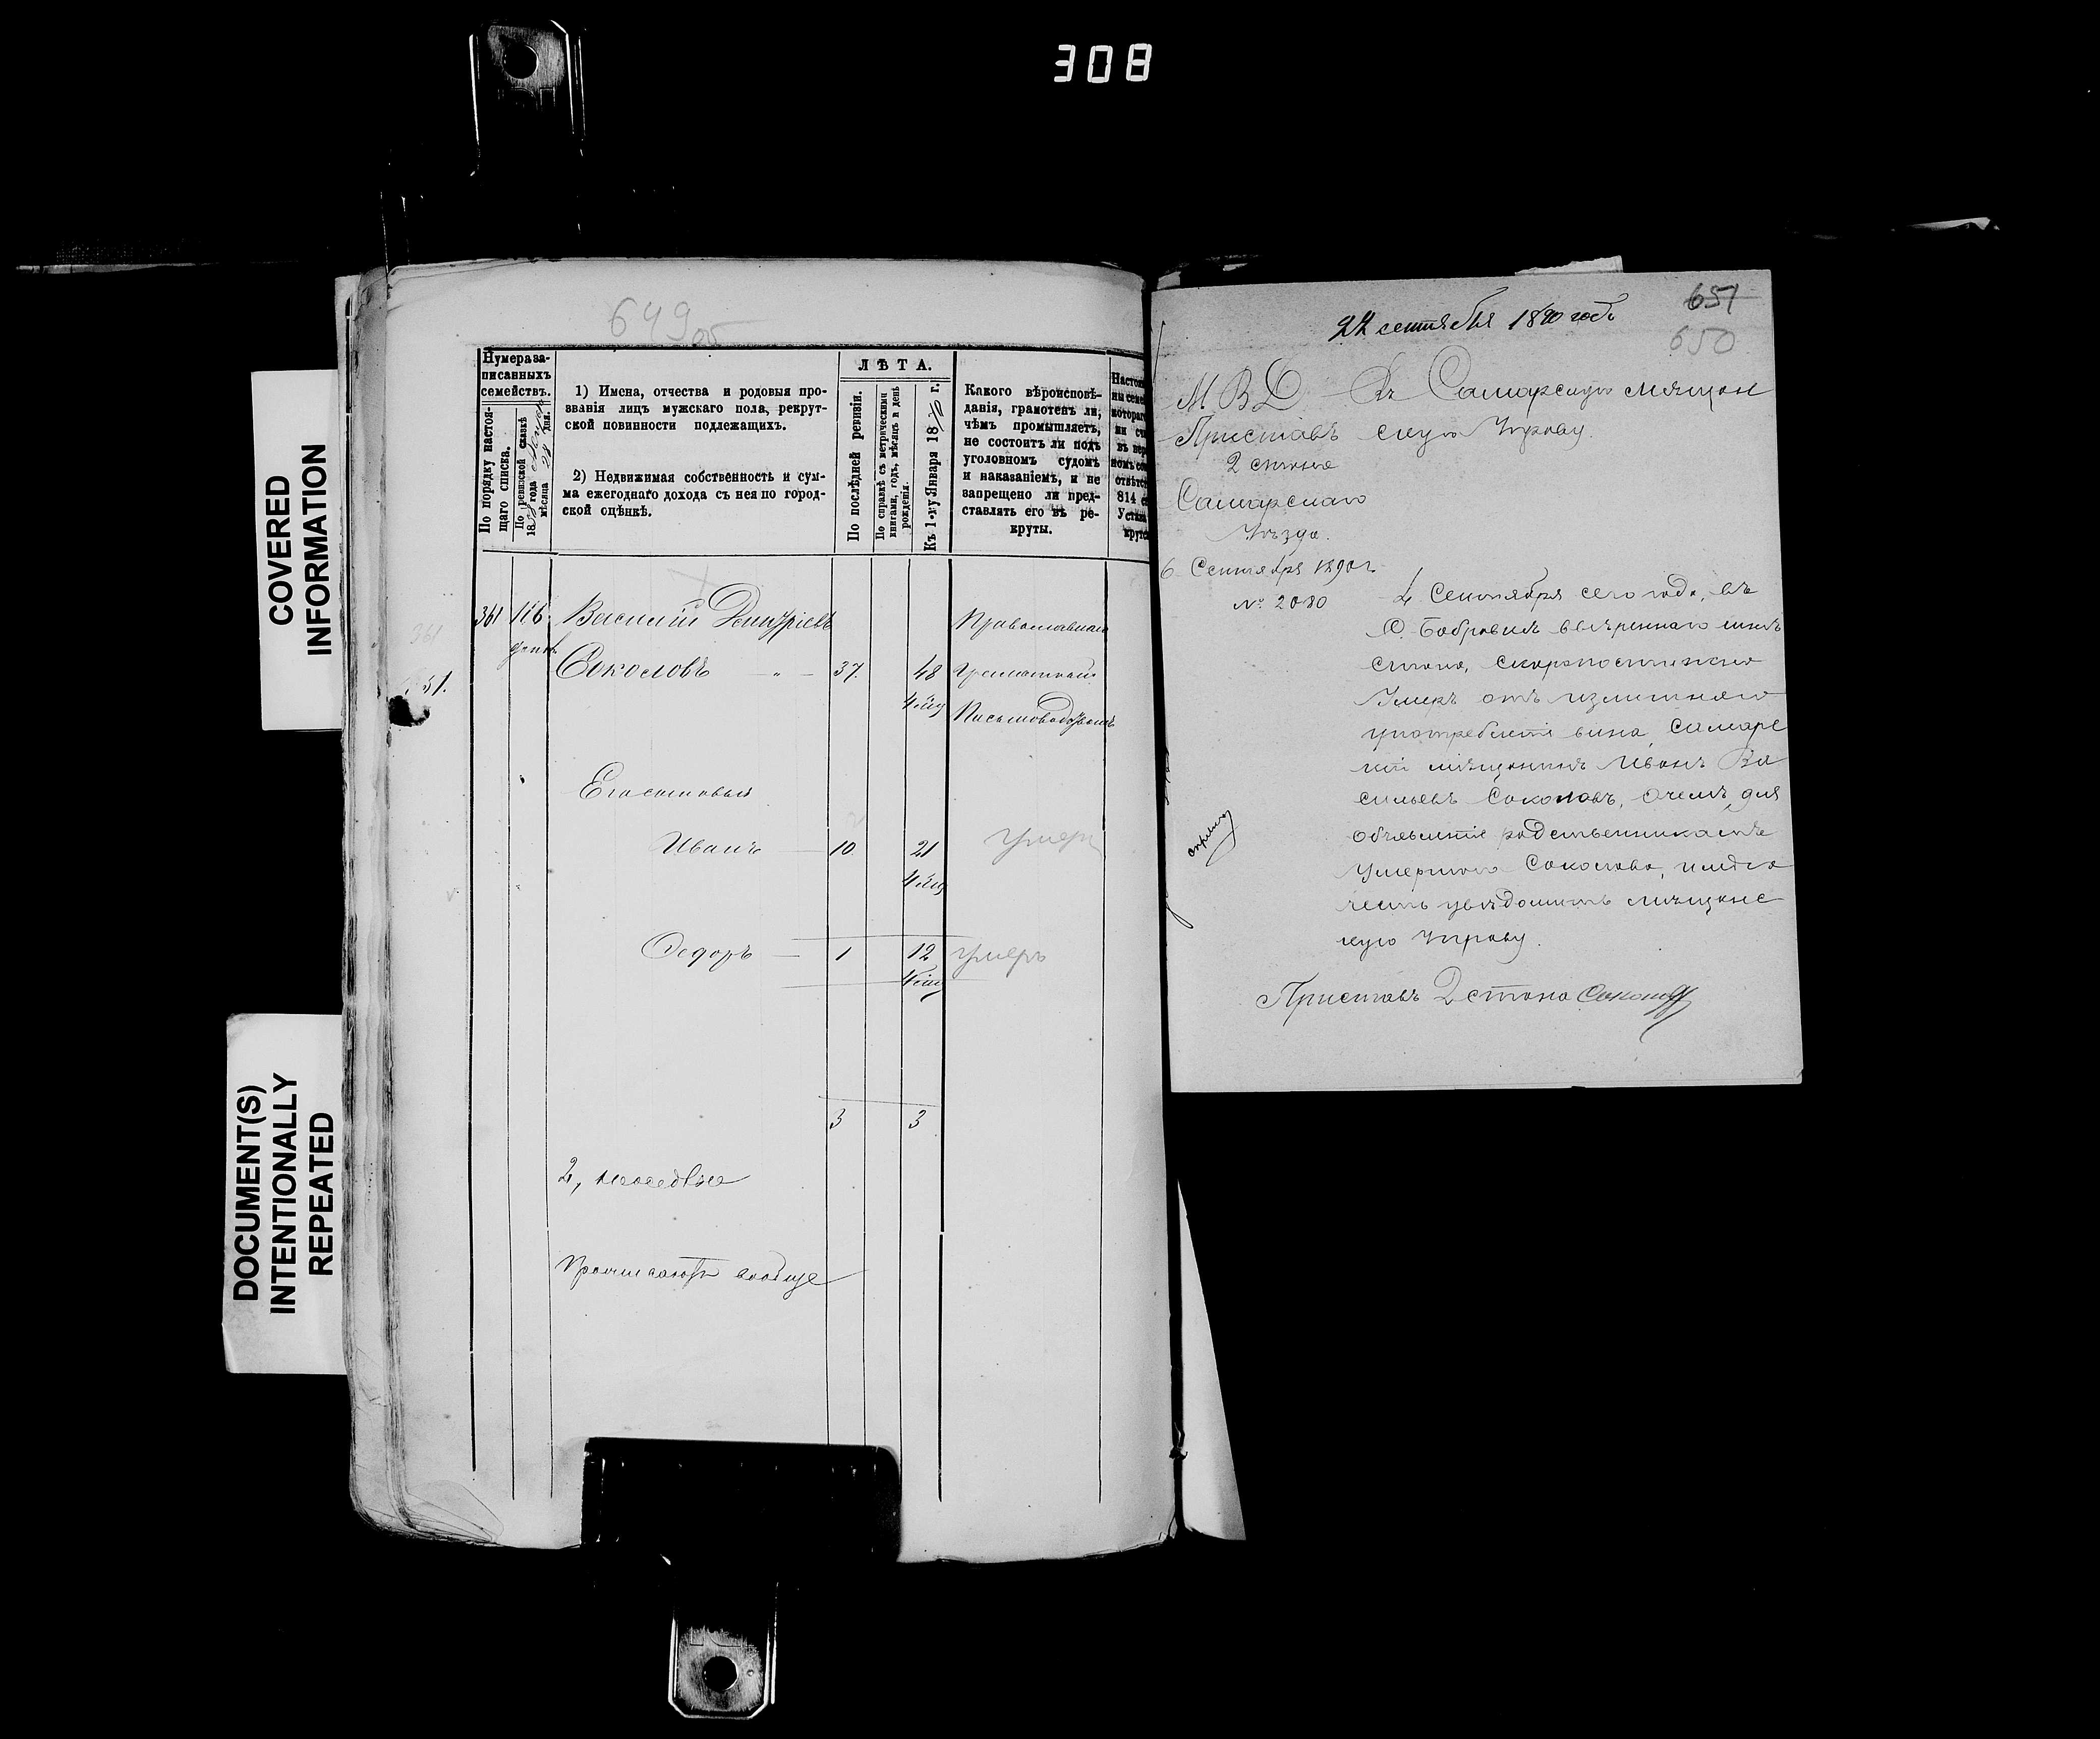 308
COVERED
INFORMATION
DOCUMENT(S)
INTENTIONALLY
REPEATED
649 об
Нумера за-
писанныхъ
семействъ.
По порядку настоя-
щаго списка.
По ревизской сказкѣ
18 года
мѣсяца 24 дня.
1) Имена, отчества и родовыя про-
званія лицъ мужскаго пола, рекрут-
ской повинности подлежащихъ.
2) Недвижимая собственность и сум-
ма ежегоднаго дохода съ нея по город-
ской оцѣнкѣ.
ЛѢТА.
По послѣдней ревизіи.
По справкѣ съ метрическими
книгами, годъ, мѣсяцъ и день
рожденія.
Къ 1-му Января 1870 г.
Какого вѣроисповѣ-
данія, грамотенъ ли,
чѣмъ промышляетъ,
не состоитъ ли подъ
уголовномъ судомъ
и наказаніемъ, и не
запрещено ли пред-
ставлять его въ ре-
круты.
361 116 Василій Дмитріевъ Православнаго
361
Соколовъ 37 48 грамотный
51. Письмоводитель
Его сыновья
Иванъ 10 21 умеръ
Федоръ 1 12 умеръ
3 3
2,
вообще
22 сентября 1890 года
651
650
М В Д Въ Самарскую мѣщан
Приставъ скую Управу.
2 стана
Самарскаго
Уѣзда.
6 Сентября 1890 г.
№ 2080
4 Сентября сего года, въ
с. Бобровкѣ ввѣреннаго мнѣ
стана, скоропостижно
умеръ отъ излишняго
употребленія вина, Самарс
кій мѣщанинъ Иванъ Ва
сильевъ Соколовъ, о чемъ для
объявленія родственникамъ
умершаго Соколова, имѣю
честь увѣдомить мѣщанс
кую Управу.
Приставъ 2 стана